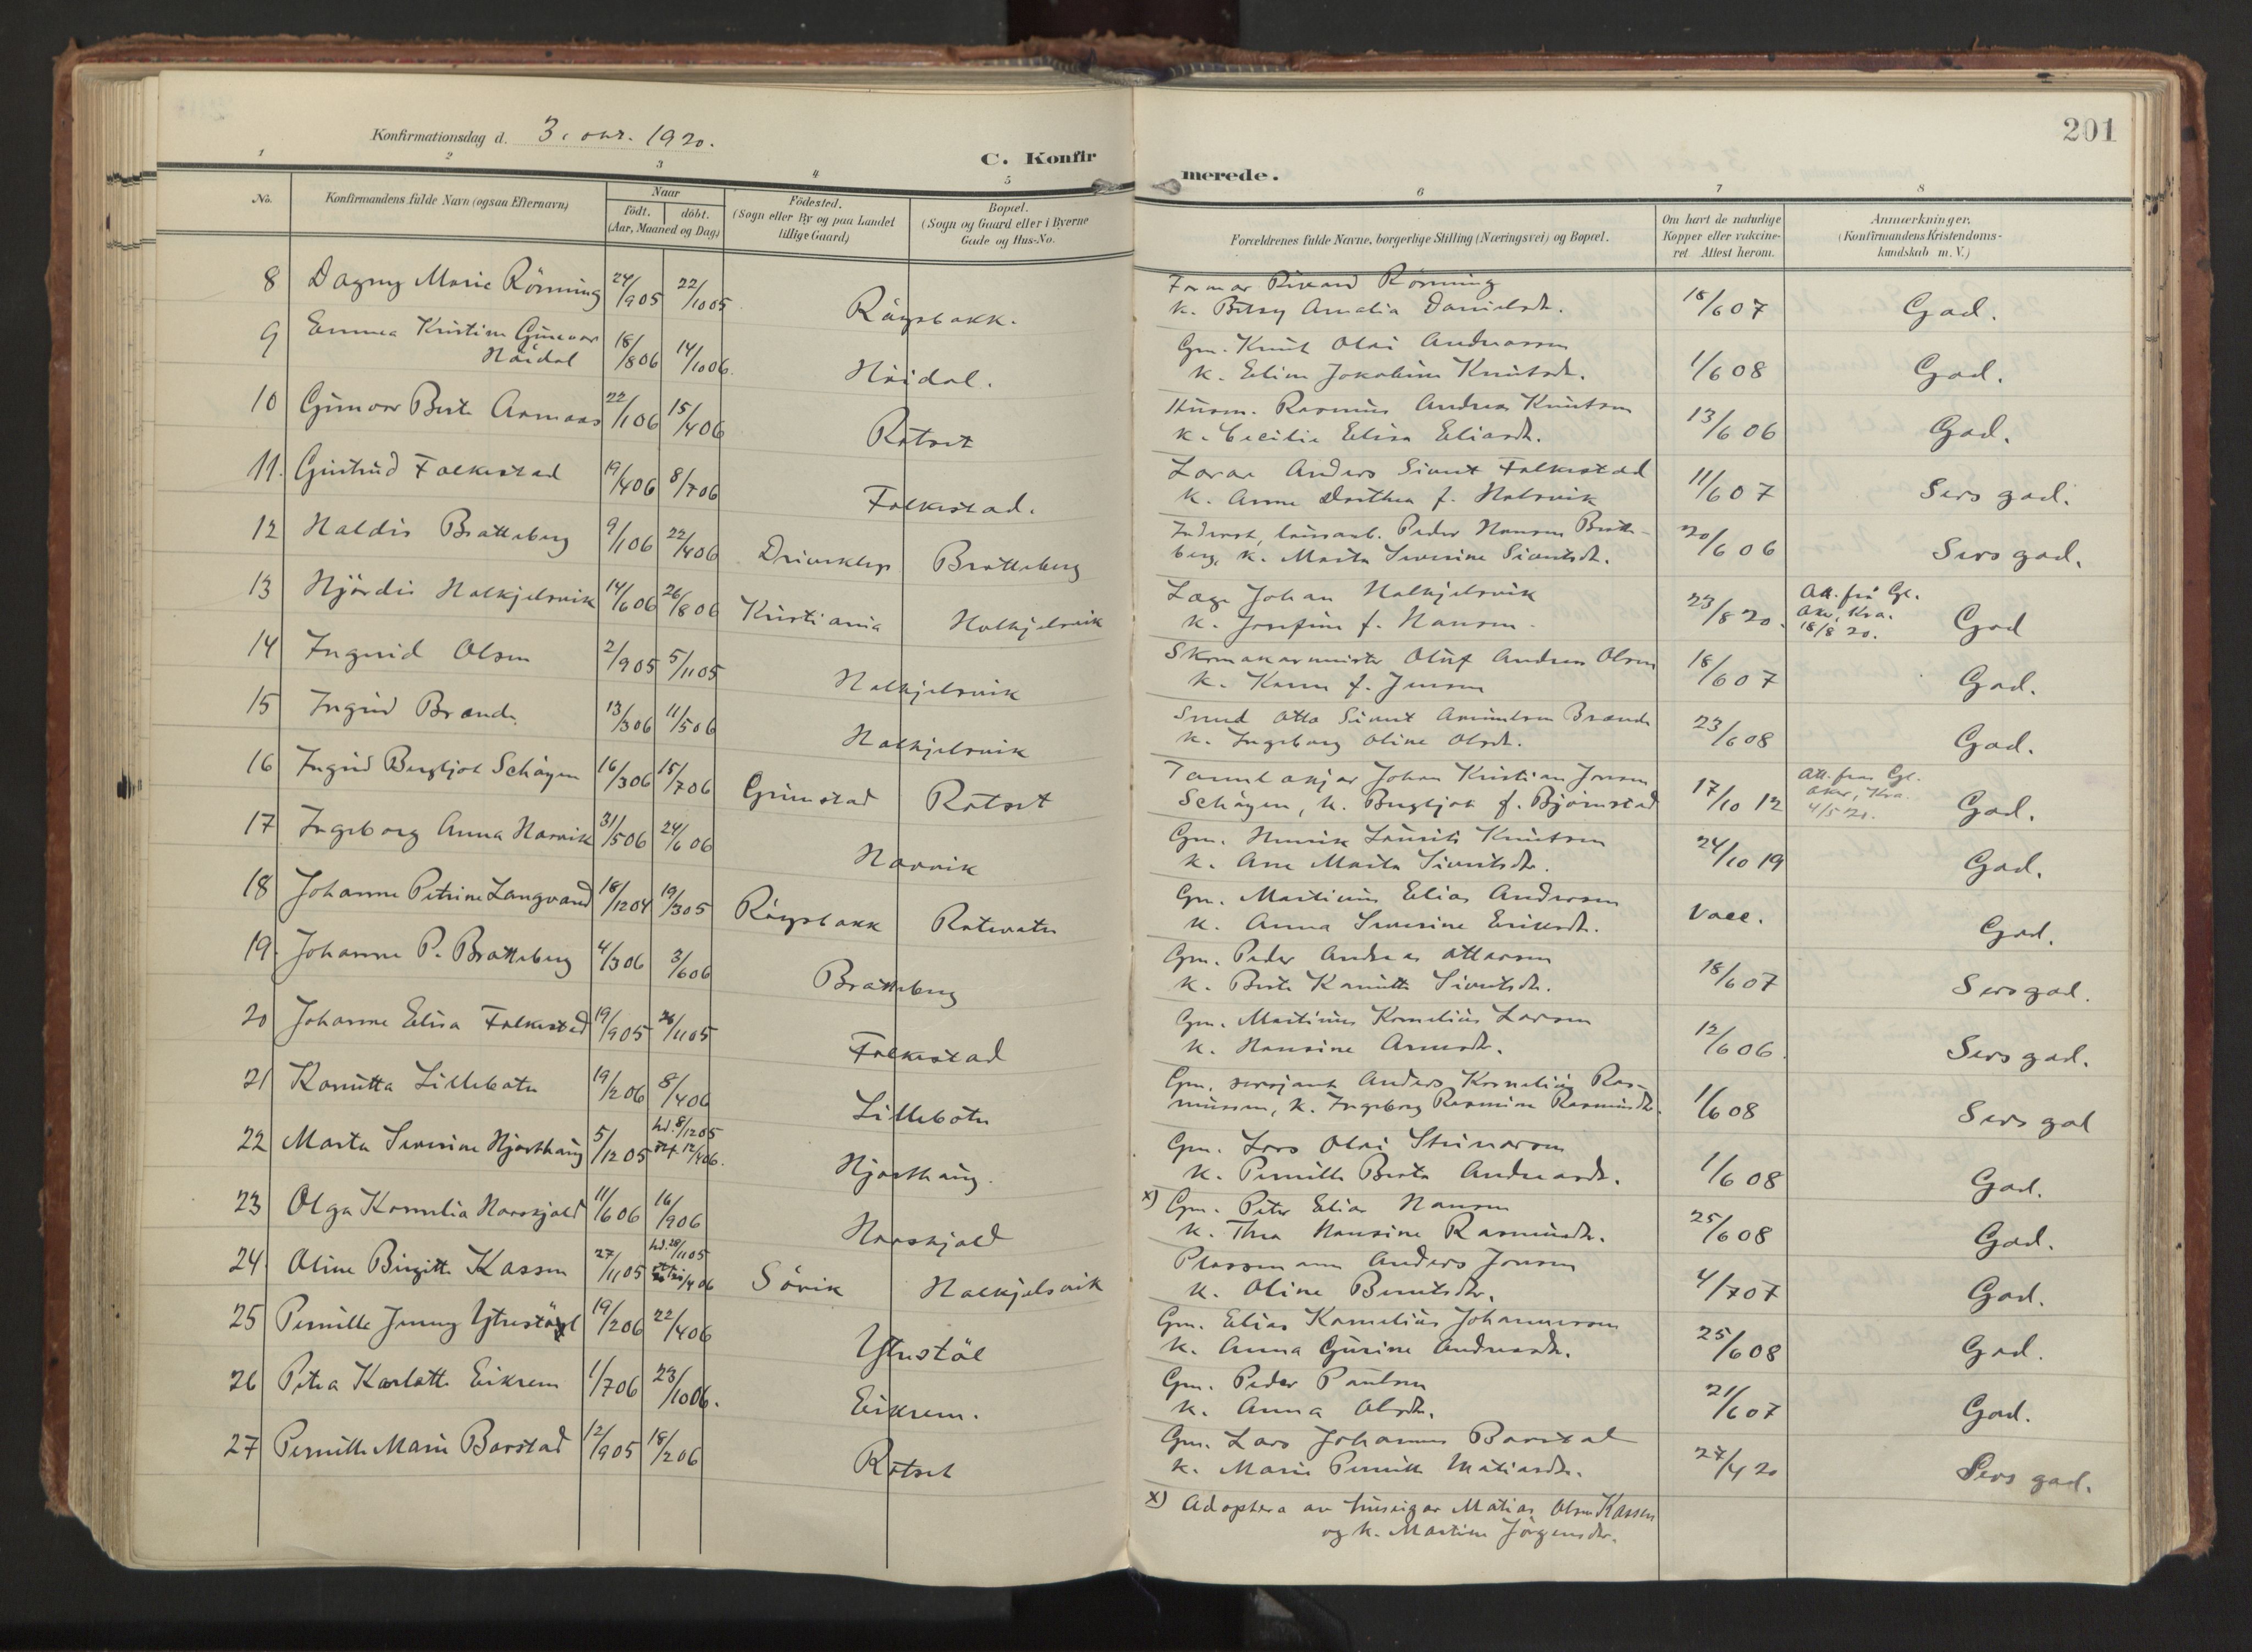 201
Konfirmationsdag d. 3. okt. 1920.
C. Konfirmerede.
1 2 3 4 5 6 7 8
No.
Konfirmandens fulde Navn (ogsaa Efternavn)
Naar
født. døbt.
(Aar, Maaned og Dag)
Födested.
(Sogn eller By og paa Landet
tillige Gaard)
Bopæl.
(Sogn og Gaard eller i Byerne
Gade og Hus-No.
Forældrenes fulde Navne, borgerlige Stilling (Næringsvei) og Bopæl.
Om havt de naturlige
Kopper eller vakcine-
ret Attest herom.
Anmærkninger.
(Konfirmandens Kristendoms-
kundskab m. V.)
8 Dagny Marie Rönning 24/9 05 22/10 05 Röysbakk. Rikard Rönning
k. Betsy Amalia Danielsdtr. 18/6 07 God.
9 Emma Kristine Gunvor
Höidal 18/8 06 14/10 06. Höidal. Gm. Knut Olai Andreassen
k. Eline Jokobine Knutsdtr. 1/6 08 God.
10 Gunvor Berte Aarmaas 22/1 06 15/4 06 Rotset Husm. Rasmus Andreas Knutsen
k. Cecilie Elisa Eliasdtr. 13/6 06 God.
11. Gurtrud Folkestad 19/4 06 8/7 06 Folkestad. Lærar Anders Sivert Folkestad
k. Anne Dorthea f. Halsvik 11/6 07 Sers god.
12 Haldis Bratteberg 9/1 06 22/4 06 Driveklep Bratteberg Inderst, lausarb. Peder Hansen Bratte-
berg, k. Marta Severine Sivertsdtr. 20/6 06 Sers god.
13 Hjördis Halkjelsvik 14/6 06 26/8 06 Kristiania Halkjelsvik Læge Johan Halkjelsvik
k. Josefine f. Hansen. 23/8 20. Att. frå Gl.
Aker, Kra.
18/8 20. God
14 Ingerid Olsen 2/9 05 5/11 05 Halkjelsvik Skomakarmeister Oluf Andreas Olsen
k. Karen f. Jensen 18/6 07 God.
15 Ingrid Brande 13/3 06 11/5 06 Halkjelsvik Smed Otto Sivert Amundsen Brande
k. Ingeborg Oline Olsdtr. 23/6 08 God.
16 Ingrid Bergljot Schöyen 16/3 06 15/7 06 Grimstad Rotset Tannlækjar Johan Kristian Jensen
Schöyen, k. Bergljot f. Björnstad 17/10 12 Att. fraa Gl.
Aker, Kra.
4/5 20. God.
17 Ingeborg Anna Hovvik 31/5 06 24/6 06 Hovvik Gm. Henrik Laurits Knutsen
k. Ane Marta Sivertsdtr. 24/10 19 God.
18 Johanne Petrine Langvand 18/12 04 19/3 05 Röysbakk Rotevatn Gm. Martinus Elias Anderssen
k. Anna Severine Eriksdtr. Vacc. God.
19. Johanne P. Bratteberg 4/3 06 3/6 06 Bratteberg Gm. Peder Andreas Ottarsen
k. Berte Kanutte Sivertsdtr. 18/6 07 Sers god.
20 Johanne Elisa Folkestad 19/9 05 26/11 05 Folkestad Gm. Martinus Kornelius Larsen
k. Hansine Arnesdtr. 12/6 06. Sers god.
21 Kanutta Lillebotn 19/2 06 8/4 06 Lillebotn Gm. sersjant Anders Kornelius Ras-
mussen, k. Ingeborg Rasmine Rasmusdtr. 1/6 08 Sers god
22 Marta Severine Hjorthaug 5/12 05 hd. 8/12 05
12/4 06. Hjorthaug. Gm. Lars Olai Steinarsen
k. Pernille Berta Andreasdtr. 1/6 08 God.
23 Olga Kornelia Hovskjold 11/6 06 16/9 06 Hovskjold x) Gm. Peter Elias Hansen
k. Thea Hansine Rasmusdtr. 25/6 08 God.
24. Oline Birgitte Kassen 27/11 05 hd. 28/11 05
/4 06 Sörik Halkjelsvik Plassmann Anders Jonsen
k. Oline Berntsdtr. 4/7 07 God.
25 Pernille Jenny Ytrestöyl 19/2 06 22/4 06 Ytrestöl Gm. Elias Kornelius Johannessen
k. Anna Gurine Andreasdtr. 25/6 08 God.
26 Petra Karlotte Eikrem 1/7 06 23/10 06. Eikrem. Gm. Peder Paulsen
k. Anna Olsdtr. 21/6 07 God.
27 Pernille Marie Barstad 12/9 05 18/2 06 Rotset Gm. Lars Johannes Barstad
k. Marie Pernille Matiasdtr. 27/4 20 Sers god.
x) Adoptera av huseigar Matias Olsen Kassen
og k. Martine Jörgensdtr.